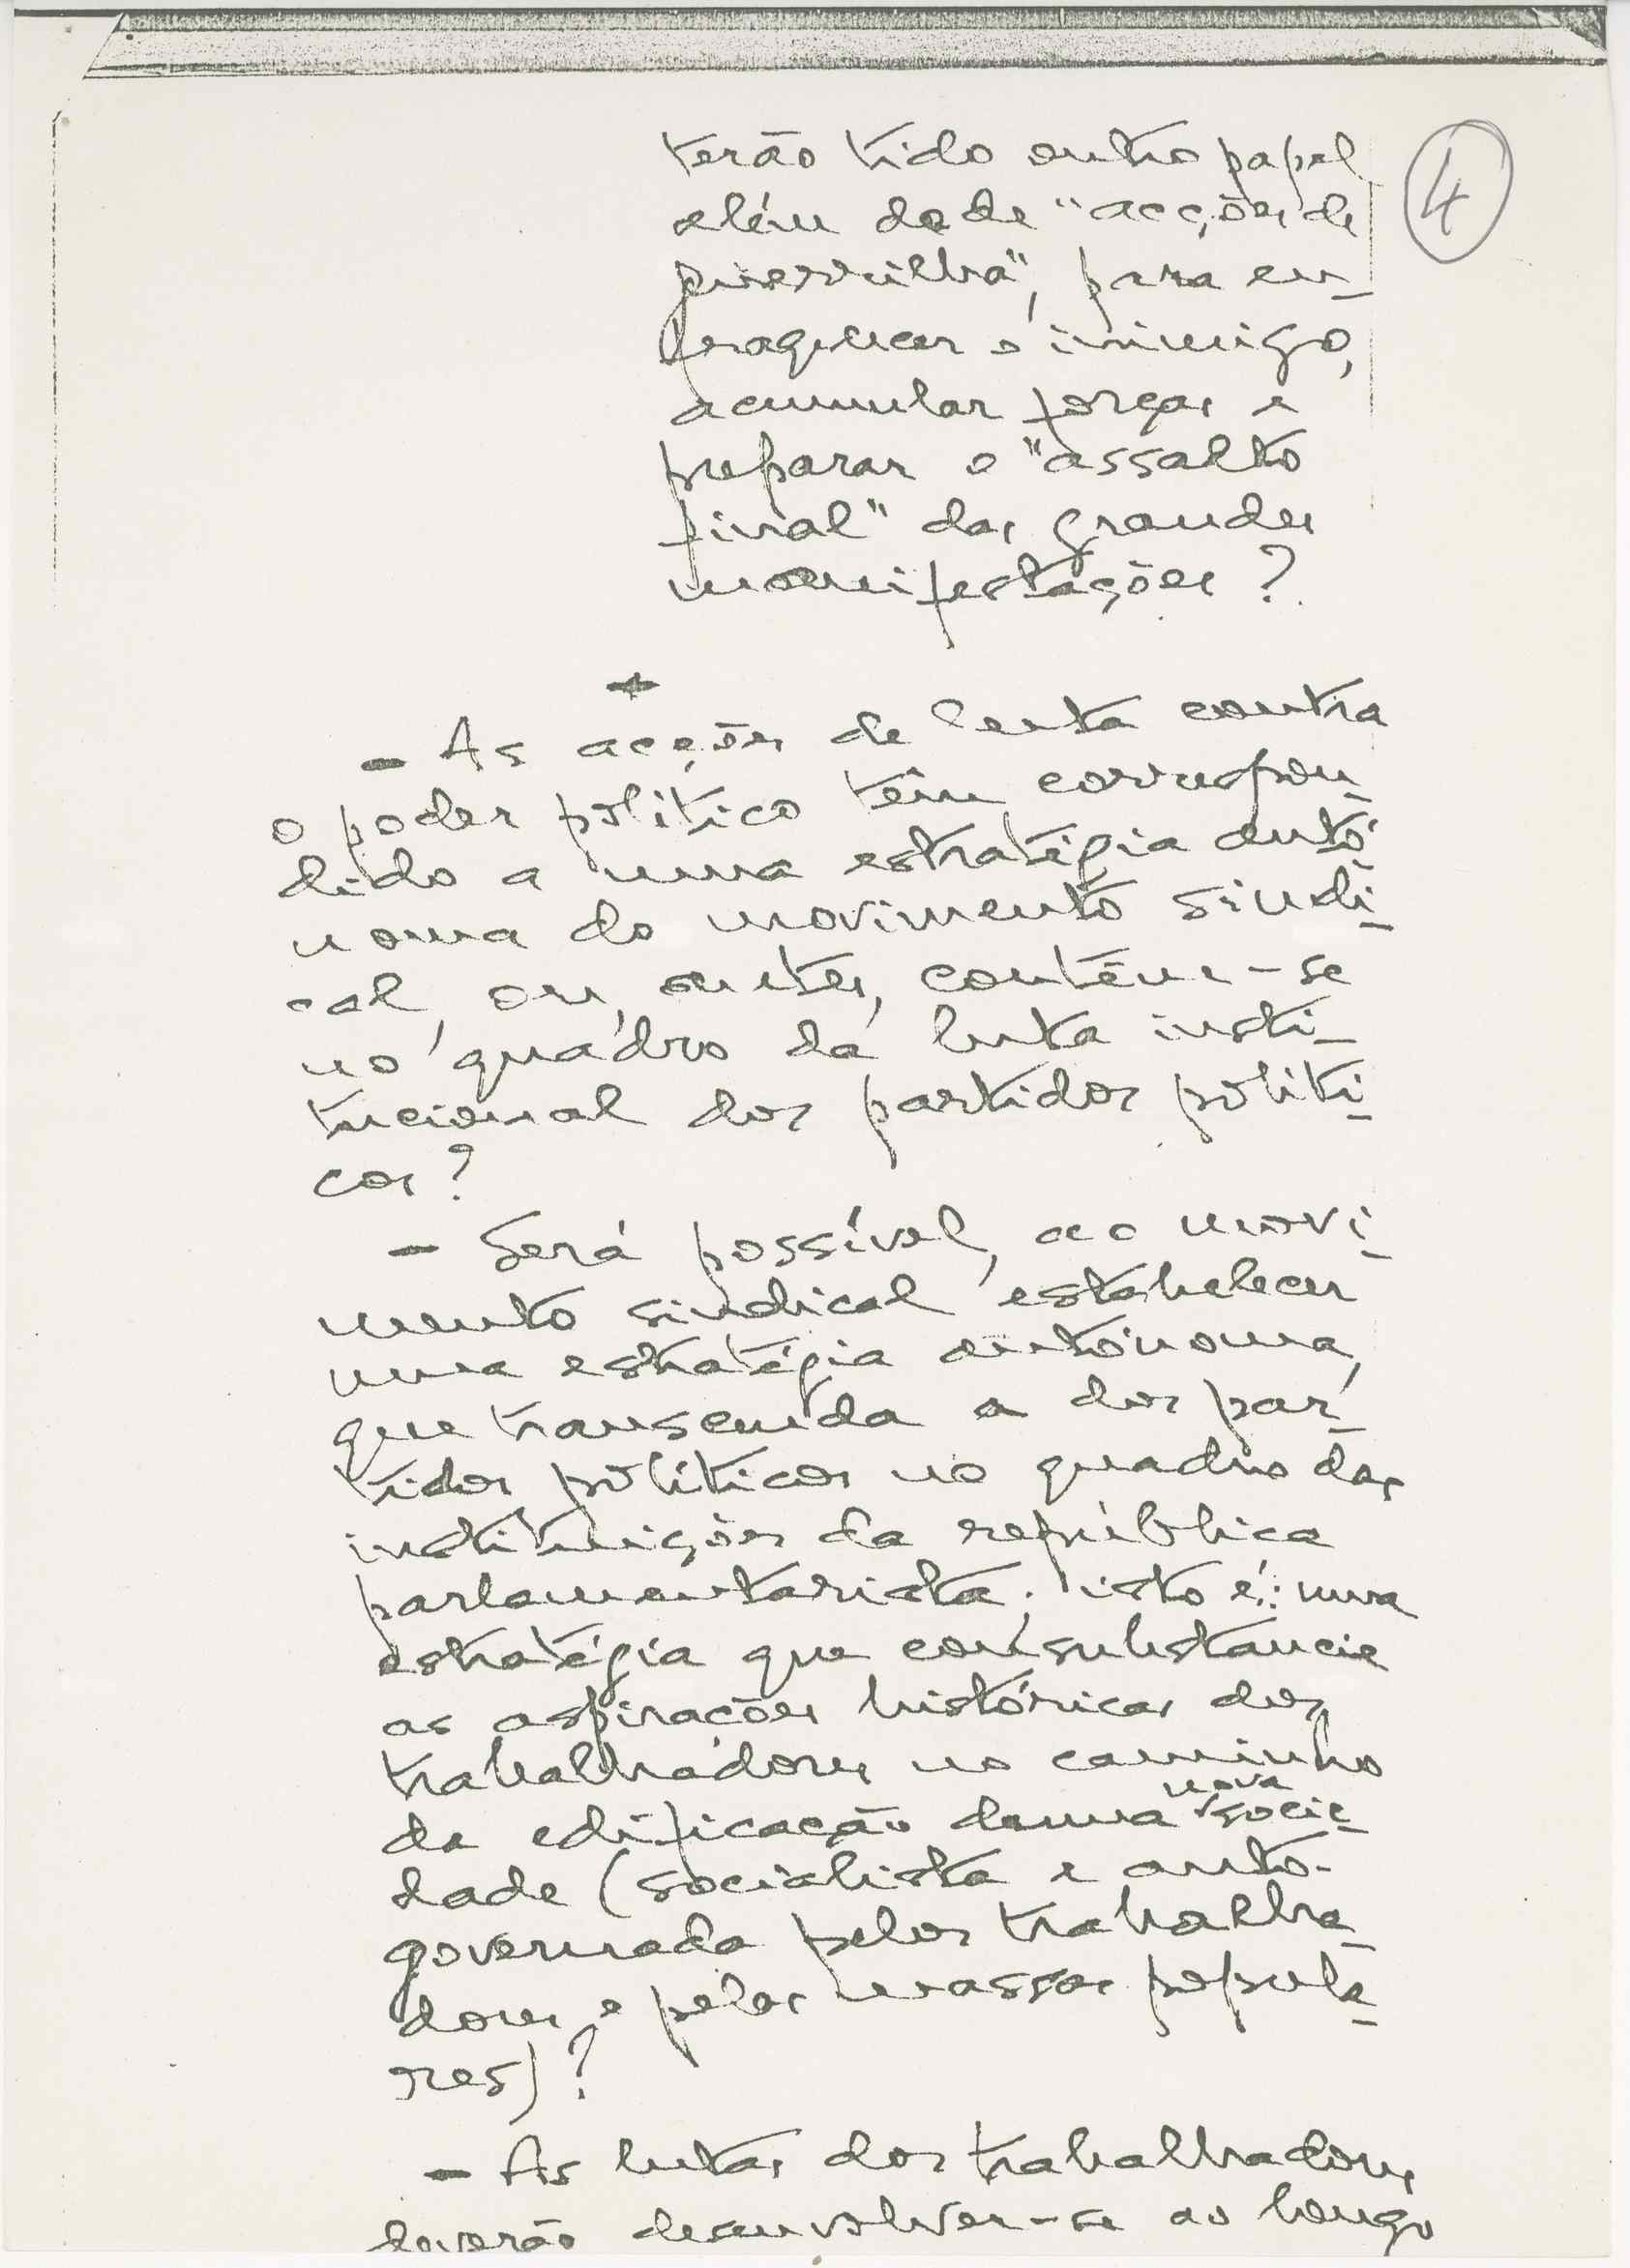 terão tido outro papel
4
além do de "acções de
guerrilha", para en-
fraquecer o inimigo,
acumular forças e
preparar o "assalto
final" das grandes
manifestações?
- As acções de luta contra
o poder político têm correspon-
dido a uma estratégia autó-
noma do movimento sindi-
cal, ou, antes, contêm-se
no quadro da luta insti-
tucional dos partidos políti-
cos?
- Será possível, ao movi-
mento sindical estabelecer
uma estratégia autónoma,
que transcenda a dos par-
tidos políticos no quadro das
instituições da república
parlamentarista; isto é: uma
estratégia que consubstancie
as aspirações históricas dos
trabalhadores no caminho
da edificação duma nova socie-
dade (socialista e auto-
governada pelos trabalha-
dores e pelas massas popula-
res)?
- As lutas dos trabalhadores
deverão desenvolver-se ao longo